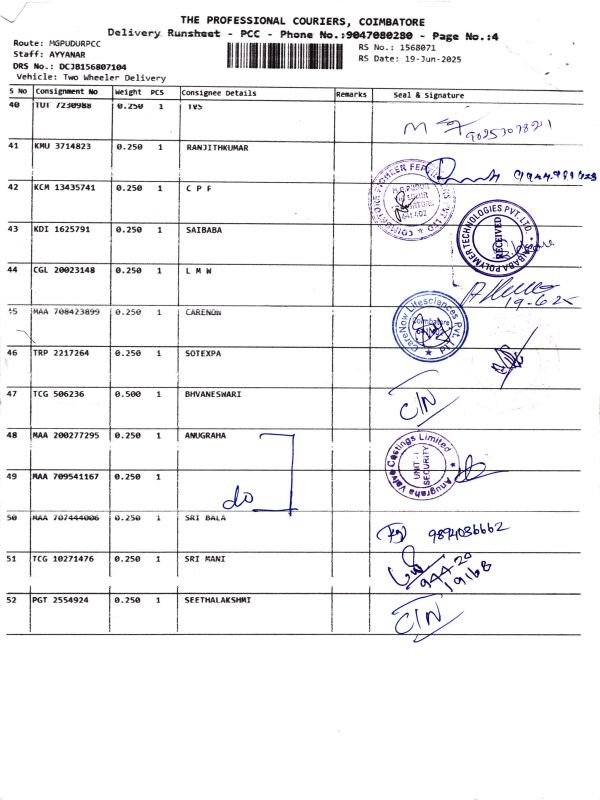 THE PROFESSIONAL COURIERS, COIMBATORE
Delivery Runsheet - PCC - Phone No.:9047080280 - Page No.:4
Route: MGPUDURPCC
Staff: AYYANAR
DRS No.: DCJB156807104
Vehicle: Two Wheeler Delivery
RS No.: 1568071
RS Date: 19-Jun-2025
S No Consignment No Weight PCS Consignee Details Remarks Seal & Signature
40 TUT 7230988 0.250 1 TVS
41 KMU 3714823 0.250 1 RANJITHKUMAR
42 KCM 13435741 0.250 1 C P F
43 KDI 1625791 0.250 1 SAIBABA
RECEIVED
44 CGL 20023148 0.250 1 L M W
19-6-25
45 MAA 708423899 0.250 1 CARENOW
CareNow Lifesciences Pvt.
46 TRP 2217264 0.250 1 SOTEXPA
47 TCG 506236 0.500 1 BHVANESWARI
C/N
48 MAA 200277295 0.250 1 ANUGRAHA
Anugraha Valve Castings Limited
UNIT-I
SECURITY
49 MAA 709541167 0.250 1
do
50 MAA 707444006 0.250 1 SRI BALA
9894036662
51 TCG 10271476 0.250 1 SRI MANI
944-20
19168
52 PGT 2554924 0.250 1 SEETHALAKSHMI
C/N